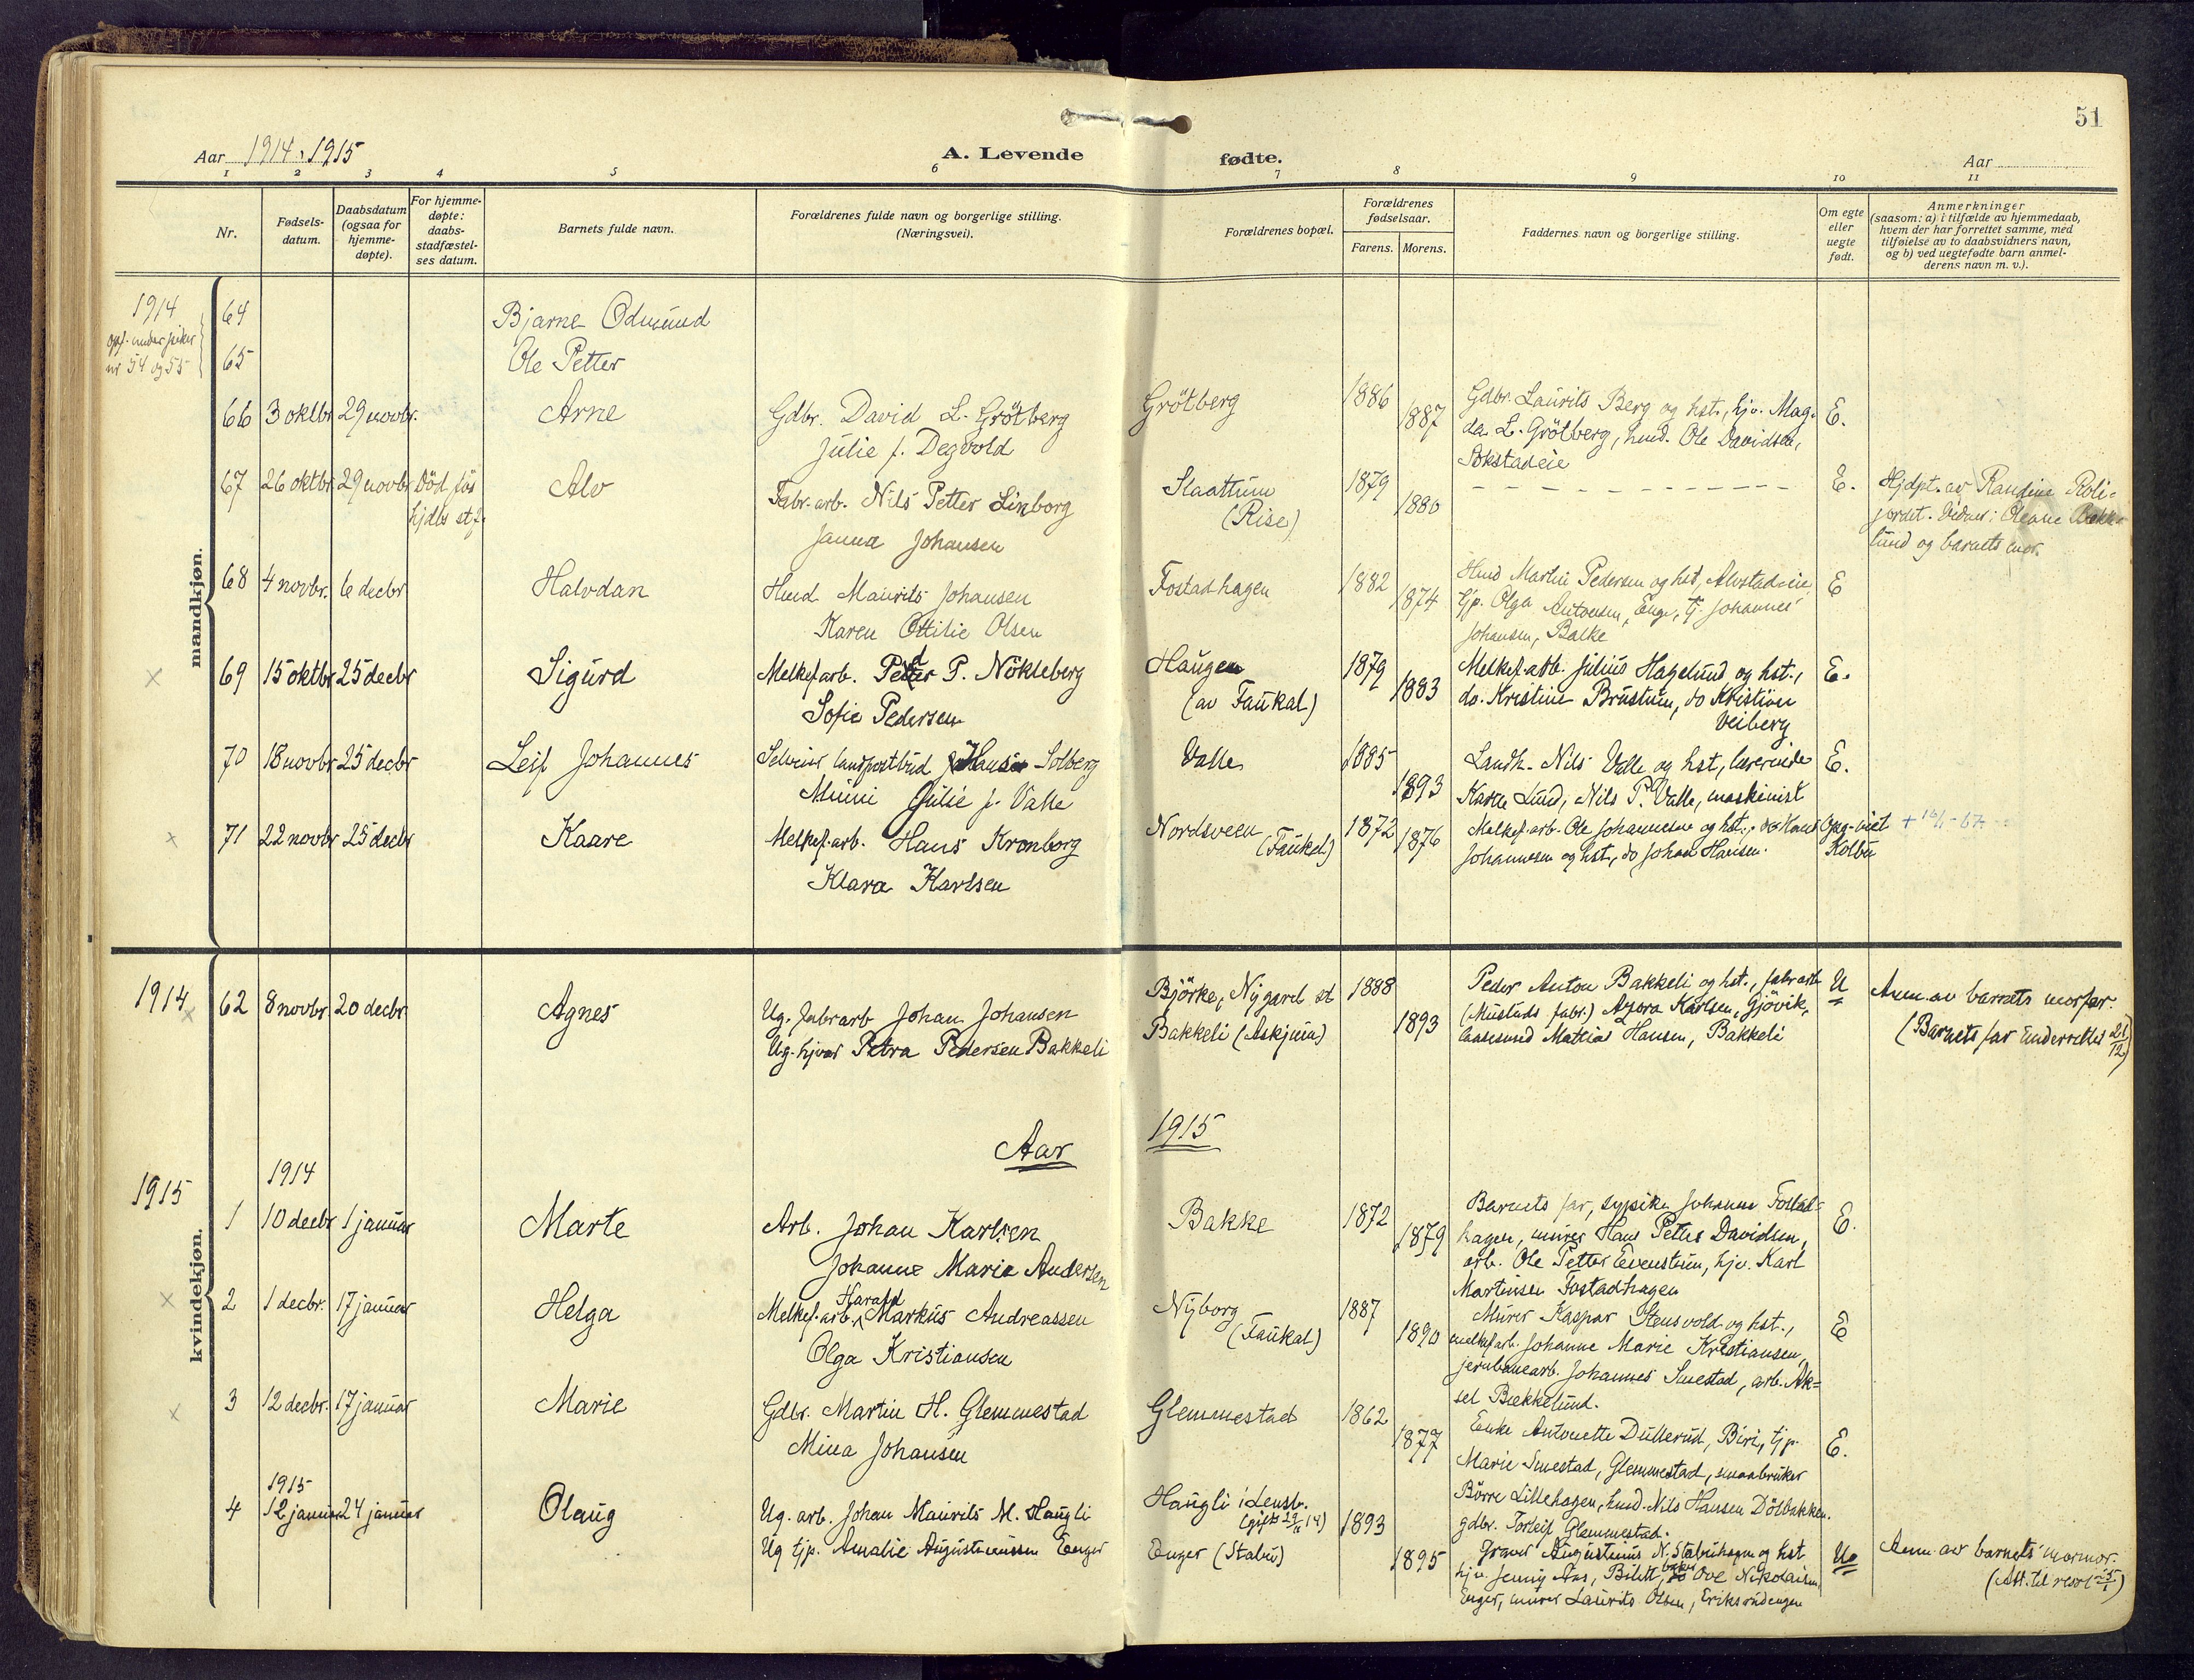 51
Aar 1914, 1915
A. Levende fødte.
Aar
1 2 3 4 5 6 7 8 9 10 11
Nr.
Fødsels-
datum.
Daabsdatum
(ogsaa for
hjemme-
døpte).
For hjemme-
døpte:
daabs-
stadfæstel-
ses datum.
Barnets fulde navn.
Forældrenes fulde navn og borgerlige stilling.
(Næringsvei).
Forældrenes bopæl.
Forældrenes
fødselsaar.
Farens. Morens.
Faddernes navn og borgerlige stilling.
Om egte
eller
uegte
født.
Anmerkninger
(saasom: a) i tilfælde av hjemmedaab,
hvem der har forrettet samme, med
tilføielse av to daabsvidners navn,
og b) ved uegtefødte barn anmel-
derens navn m. v.).
mandkjøn.
1914
opf. under piker
nr 54 og 55
64 Bjarne Odmund
65 Ole Petter
66 3 oktbr 29 novbr. Arne
Gdbr. David L. Grötberg
Julie f. Degvold
Grötberg
1886
1887
Gdbr. Laurits Berg og hst., hjv. Mag-
da L. Grötberg, husd. Ole Davidsen,
Sokstadeie
E.
67 26 oktbr 29 novbr Död før
hjdbs stf. Alv
Fabr.arb. Nils Petter Linborg
Janna Johansen
Slaattum
(Rise)
1879
1880
E.
Hjdpt. av Randine Roli-
jordet. Vidner: Oleane Bekk-
lund og barnets mor.
68 4 novbr. 6 decbr Halvdan
Husd. Maurits Johansen
Karen Ottilie Olsen
Fostadhagen
1882
1874
Husd Martin Pedersen og hst, Alvstadeie,
tjp. Olga Antonsen, Enge, tj. Johannes
Johansen, Balke
E
69 15 oktbr 25 decbr Sigurd
Melkef.arb. Peder P. Nökleberg
Sofie Pedersen
Haugen
(av Faukal)
1879
1883
Melkef.arb. Julius Hagelund og hst.,
do. Kristine Brustuen, do Kristian
Veiberg
E.
70 18 novbr 25 decbr Leif Johannes
landpostbud Hans Solberg
Minni Julie f. Valle
Valle
1885
1893
Landh. Nils Valle og hst, lærerinde
Karen Lund, Nils P. Valle, maskinist
E.
71 22 novbr 25 decbr Kaare
Melkef.arb. Hans Kronborg
Klara Karlsen
Nordsveen
(Faukal)
1872
1876
Melkef.arb. Ole Johannesen og hst.,
Johannesen og hst, do Johan Hansen.
Kolbu
kvindekjøn.
1914
62 8 novbr 20 decbr Agnes
Ug. fabrarb Johan Johansen
Ug. hjvar Petra Pedersen Bakkeli
Björke, Nygard st
Bakkeli (Askjum)
1888
1893
Peder Anton Bakkeli og hst., fabrarb
(Mustads fabr.) Karlsen, Gjövik,
Matias Hansen, Bakkeli
U
Anm. av barnets morfar.
(Barnets far underrettet 21/12)
Aar 1915
1915
1914
1 10 decbr 1 januar Marte
Arb. Johan Karlsen
Johanne Marie Andersen
Bakke
1872
1879
Barnets far, sypike Johanne Fostad-
hagen, murer Hans Petter Davidsen,
arb. Ole Petter Evenstuen, hjv. Karl
Martinsen Fostadhagen
E.
2 1 decbr. 17 januar Helga
Melkef.arb. Harald Markus Andreassen
Olga Kristiansen
Nyborg
(Faukal)
1887
1890
Murer Kaspar Stensvold og hst.,
melkefarb. Johanne Marie Kristiansen,
jernbanearb. Johannes Smestad, arb. Ak-
sel Bækkelund.
E
3 12 decbr. 17 januar Marie
Gdbr. Martin H. Glemmestad
Mina Johansen
Glemmestad
1862
1877
Enke Antonette Dullerud, Biri, tjp.
Marie Smestad, Glemmestad, smaabruker
Börre Lillehagen, husd. Nils Hansen Dölbakken,
gdbr. Torleif Glemmestad.
E.
1915
4 12 januar 24 januar Olaug
Ug. arb. Johan Maurits M. Haugli
Ug tjp. Amalie Augustinussen Enger
Haugli i Lensb.
Enger (Stabu)
1893
1895
Graver Augustinus N. Stabuhagen og hst
hjv. Jenny Aas, Bilitt, Ove Nikolaisen,
Enger, murer Laurits Olsen, Eriksrudengen
U
Anm. av barnets mormor.